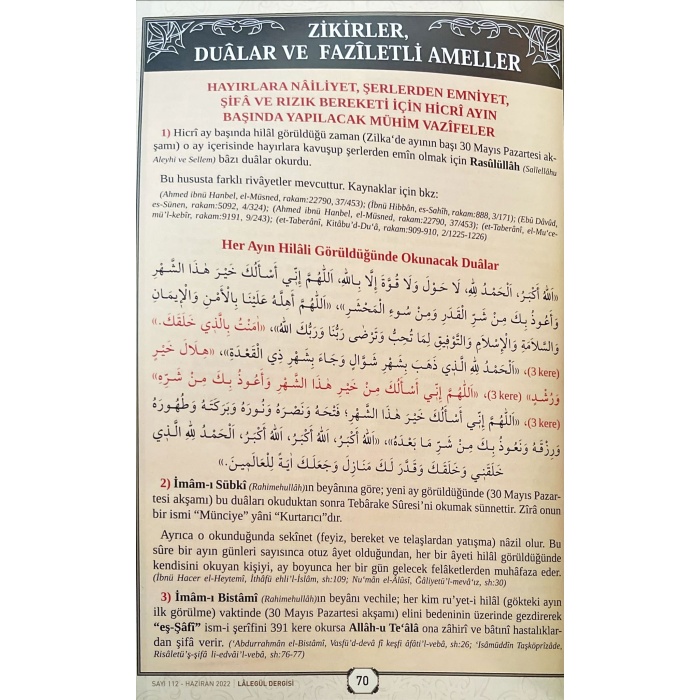 ZİKİRLER,
DUÂLAR VE FAZÎLETLİ AMELLER
HAYIRLARA NÂİLİYET, ŞERLERDEN EMNİYET,
ŞİFÂ VE RIZIK BEREKETİ İÇİN HİCRÎ AYIN
BAŞINDA YAPILACAK MÜHİM VAZÎFELER
1) Hicrî ay başında hilâl görüldüğü zaman (Zilka‘de ayının başı 30 Mayıs Pazartesi ak-
şamı) o ay içerisinde hayırlara kavuşup şerlerden emîn olmak için Rasûlüllâh (Sallellâhu
Aleyhi ve Sellem) bâzı duâlar okurdu.
Bu hususta farklı rivâyetler mevcuttur. Kaynaklar için bkz:
(Ahmed ibnü Hanbel, el-Müsned, rakam:22790, 37/453); (İbnü Hibbân, es-Sahîh, rakam:888, 3/171); (Ebû Dâvûd,
es-Sünen, rakam:5092, 4/324); (Ahmed ibnü Hanbel, el-Müsned, rakam:22790, 37/453); (et-Taberânî, el-Mu‘ce-
mü’l-kebîr, rakam:9191, 9/243); (et-Taberânî, Kitâbu’d-Du‘â, rakam:909-910, 2/1225-1226)
Her Ayın Hilâli Görüldüğünde Okunacak Duâlar
«اَللّٰهُ أَكْبَرُ، اَلْحَمْدُ لِلّٰهِ، لَا حَوْلَ وَلَا قُوَّةَ إِلَّا بِاللّٰهِ، اَللّٰهُمَّ إِنِّي أَسْأَلُكَ خَيْرَ هٰذَا الشَّهْرِ
وَأَعُوذُ بِكَ مِنْ شَرِّ الْقَدَرِ وَمِنْ سُوءِ الْمَحْشَرِ»، «اَللّٰهُمَّ أَهِلَّهُ عَلَيْنَا بِالْأَمْنِ وَالْإِيمَانِ
وَالسَّلَامَةِ وَالْإِسْلَامِ وَالتَّوْفِيقِ لِمَا تُحِبُّ وَتَرْضٰى رَبُّنَا وَرَبُّكَ اللّٰهُ»، «اٰمَنْتُ بِالَّذِي خَلَقَكَ.»
(3 kere)، «اَلْحَمْدُ لِلّٰهِ الَّذِي ذَهَبَ بِشَهْرِ شَوَّالٍ وَجَاءَ بِشَهْرِ ذِي الْقَعْدَةِ»، «هِلَالُ خَيْرٍ
وَرُشْدٍ» (3 kere)، «اَللّٰهُمَّ إِنِّي أَسْأَلُكَ مِنْ خَيْرِ هٰذَا الشَّهْرِ وَأَعُوذُ بِكَ مِنْ شَرِّهِ»
(3 kere)، «اَللّٰهُمَّ إِنِّي أَسْأَلُكَ خَيْرَ هٰذَا الشَّهْرِ؛ فَتْحَهُ وَنَصْرَهُ وَنُورَهُ وَبَرَكَتَهُ وَطُهُورَهُ
وَرِزْقَهُ وَنَعُوذُ بِكَ مِنْ شَرِّ مَا بَعْدَهُ»، «اَللّٰهُ أَكْبَرُ، اَللّٰهُ أَكْبَرُ، اَللّٰهُ أَكْبَرُ، اَلْحَمْدُ لِلّٰهِ الَّذِي
خَلَقَنِي وَخَلَقَكَ وَقَدَّرَ لَكَ مَنَازِلَ وَجَعَلَكَ اٰيَةً لِلْعَالَمِينَ.»
2) İmâm-ı Sübkî (Rahimehullâh)ın beyânına göre; yeni ay görüldüğünde (30 Mayıs Pazar-
tesi akşamı) bu duâları okuduktan sonra Tebârake Sûresi’ni okumak sünnettir. Zîrâ onun
bir ismi “Münciye” yâni “Kurtarıcı”dır.
Ayrıca o okunduğunda sekînet (feyiz, bereket ve telaşlardan yatışma) nâzil olur. Bu
sûre bir ayın günleri sayısınca otuz âyet olduğundan, her bir âyeti hilâl görüldüğünde
kendisini okuyan kişiyi, ay boyunca her bir gün gelecek felâketlerden muhâfaza eder.
(İbnü Hacer el-Heytemî, İthâfü ehli’l-İslâm, sh:109; Nu‘mân el-Âlûsî, Ğâliyetü’l-mevâ‘ız, sh:30)
3) İmâm-ı Bistâmî (Rahimehullâh)ın beyânı vechile; her kim ru’yet-i hilâl (gökteki ayın
ilk görülme) vaktinde (30 Mayıs Pazartesi akşamı) elini bedeninin üzerinde gezdirerek
“eş-Şâfî” ism-i şerîfini 391 kere okursa Allâh-u Te‘âlâ ona zâhirî ve bâtınî hastalıklar-
dan şifâ verir. (‘Abdurrahmân el-Bistâmî, Vasfü’d-devâ fî keşfi âfâti’l-vebâ, sh:26; ‘Isâmüddîn Taşköprîzâde,
Risâletü’ş-şifâ li-edvâi’l-vebâ, sh:76-77)
SAYI 112 - HAZİRAN 2022 | LÂLEGÜL DERGİSİ
70